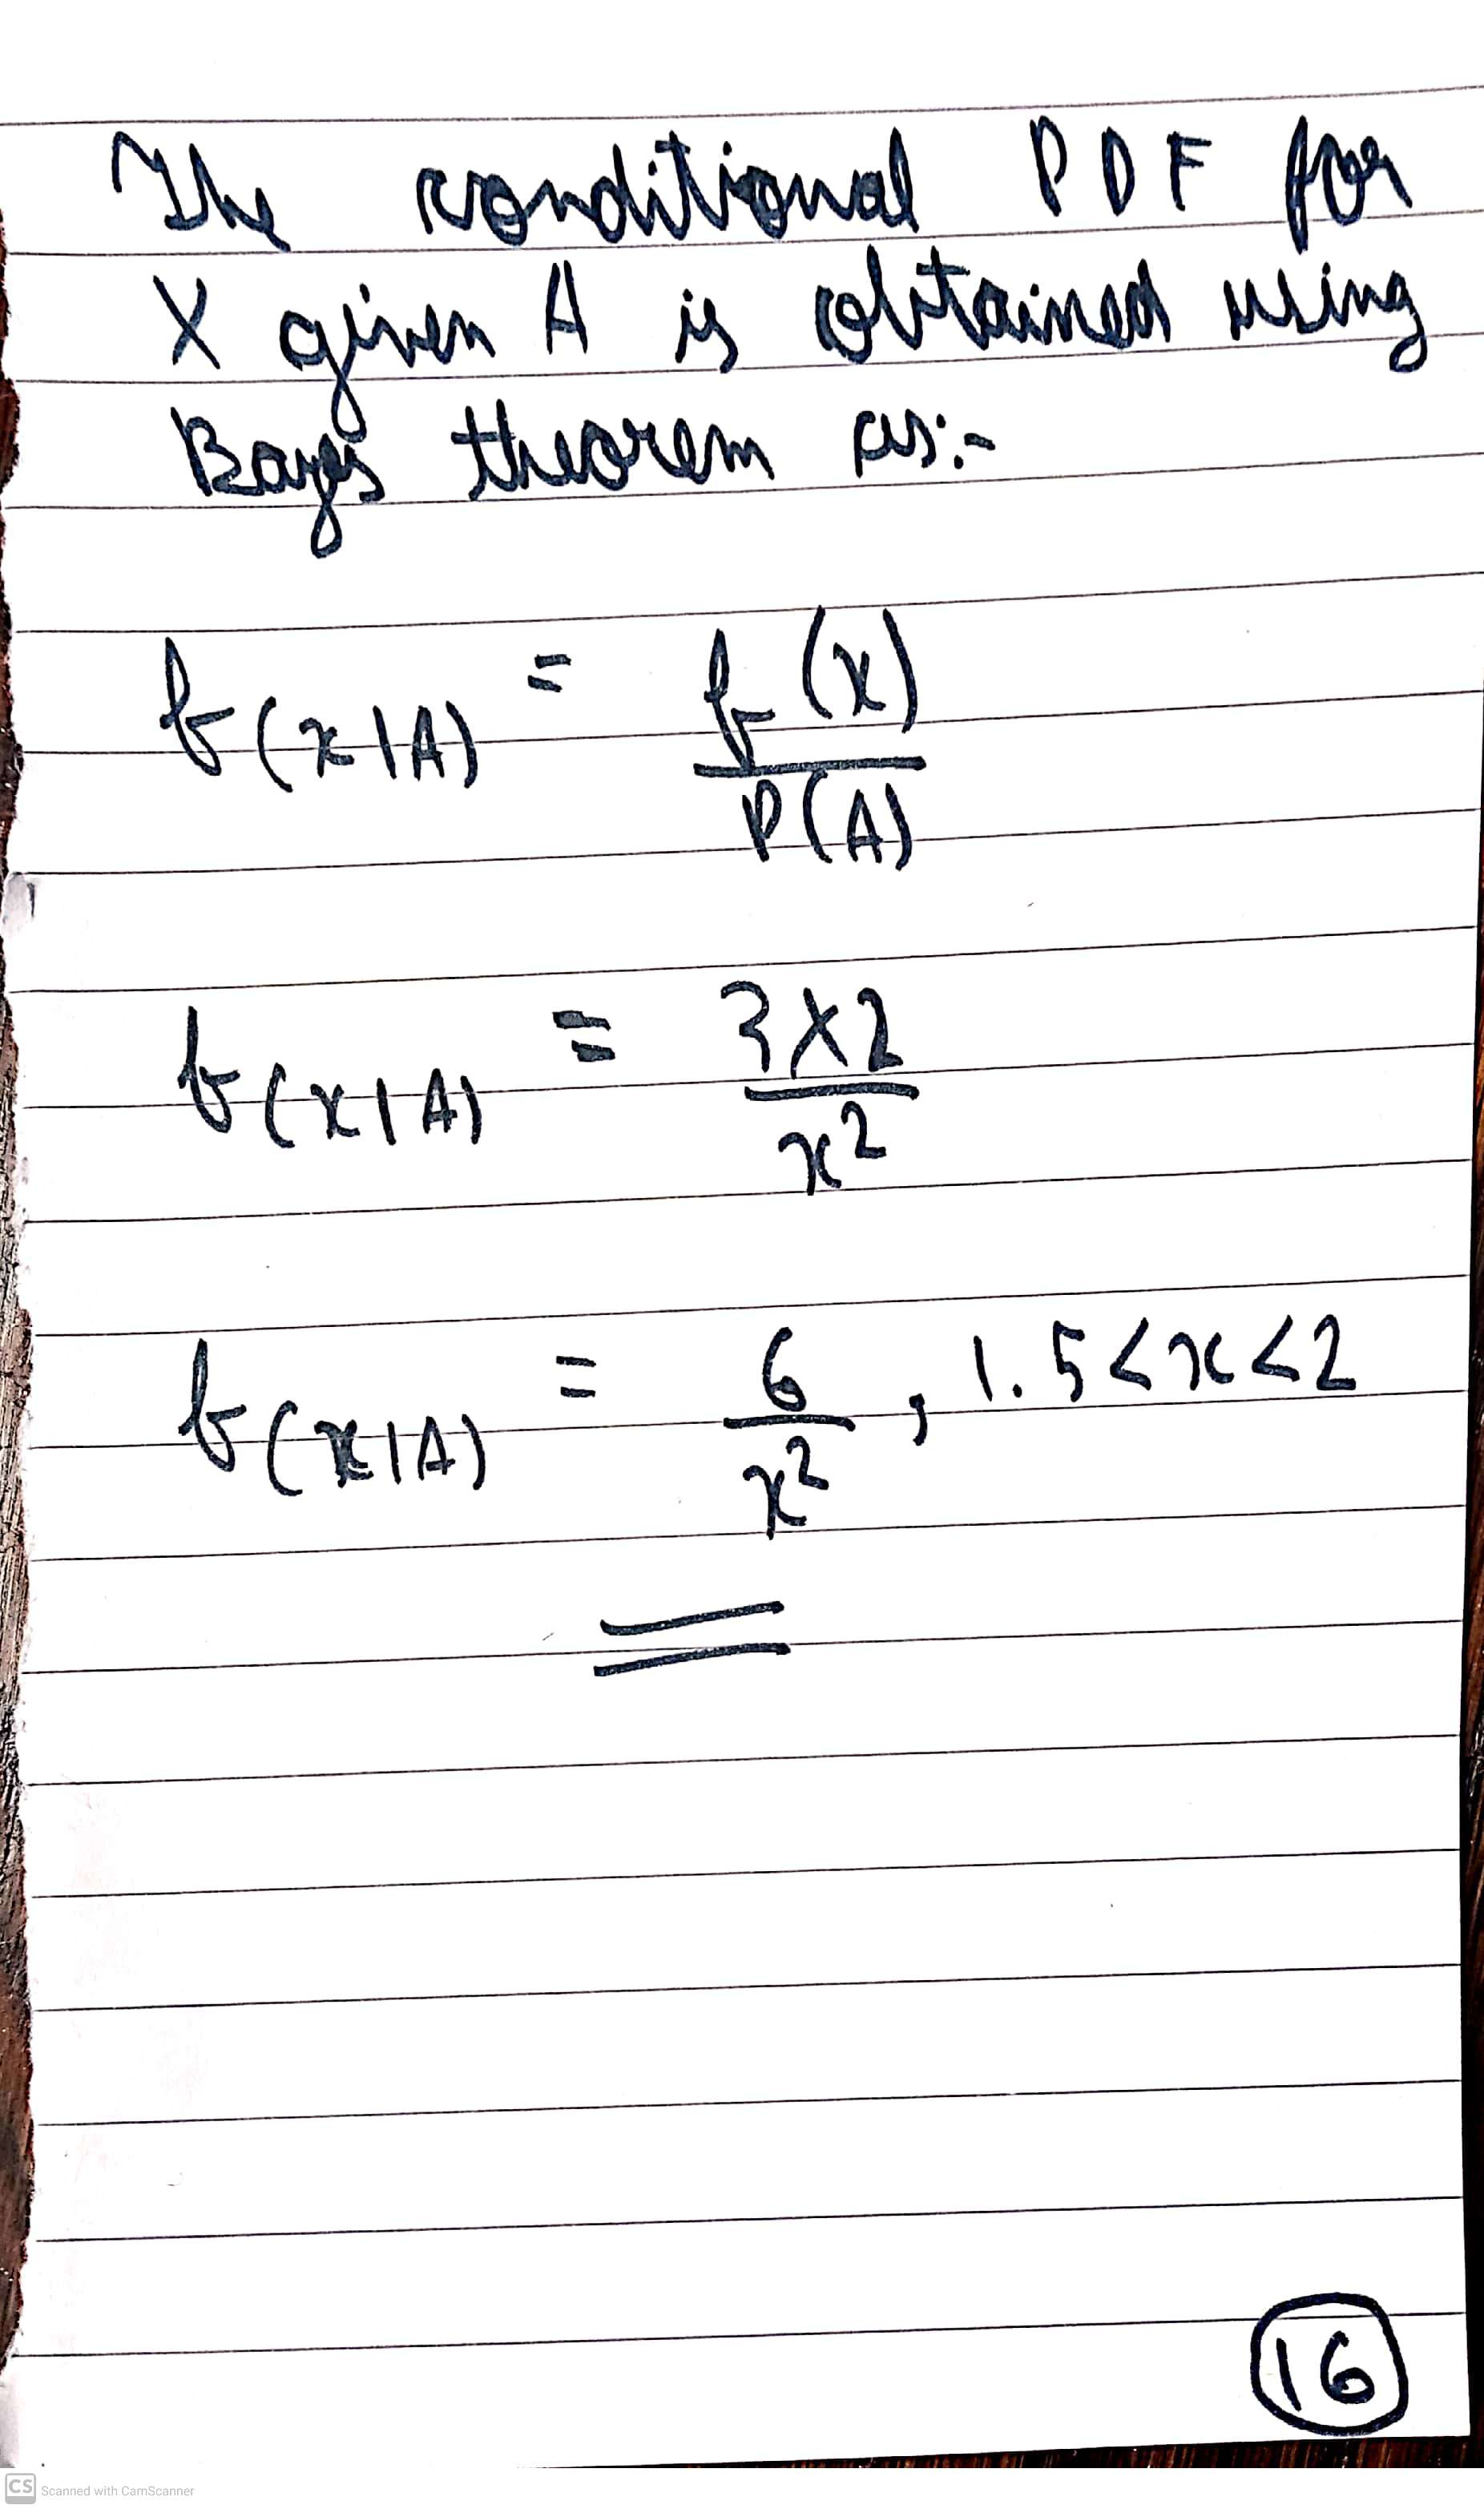 The conditional PDF for
X given A is obtained using
Bayes theorem as:-
f(x|A) = f(x)
P(A)
f(x|A) = 3×2
x²
f(x|A) = 6 , 1.5<x<2
x²
16
CS Scanned with CamScanner